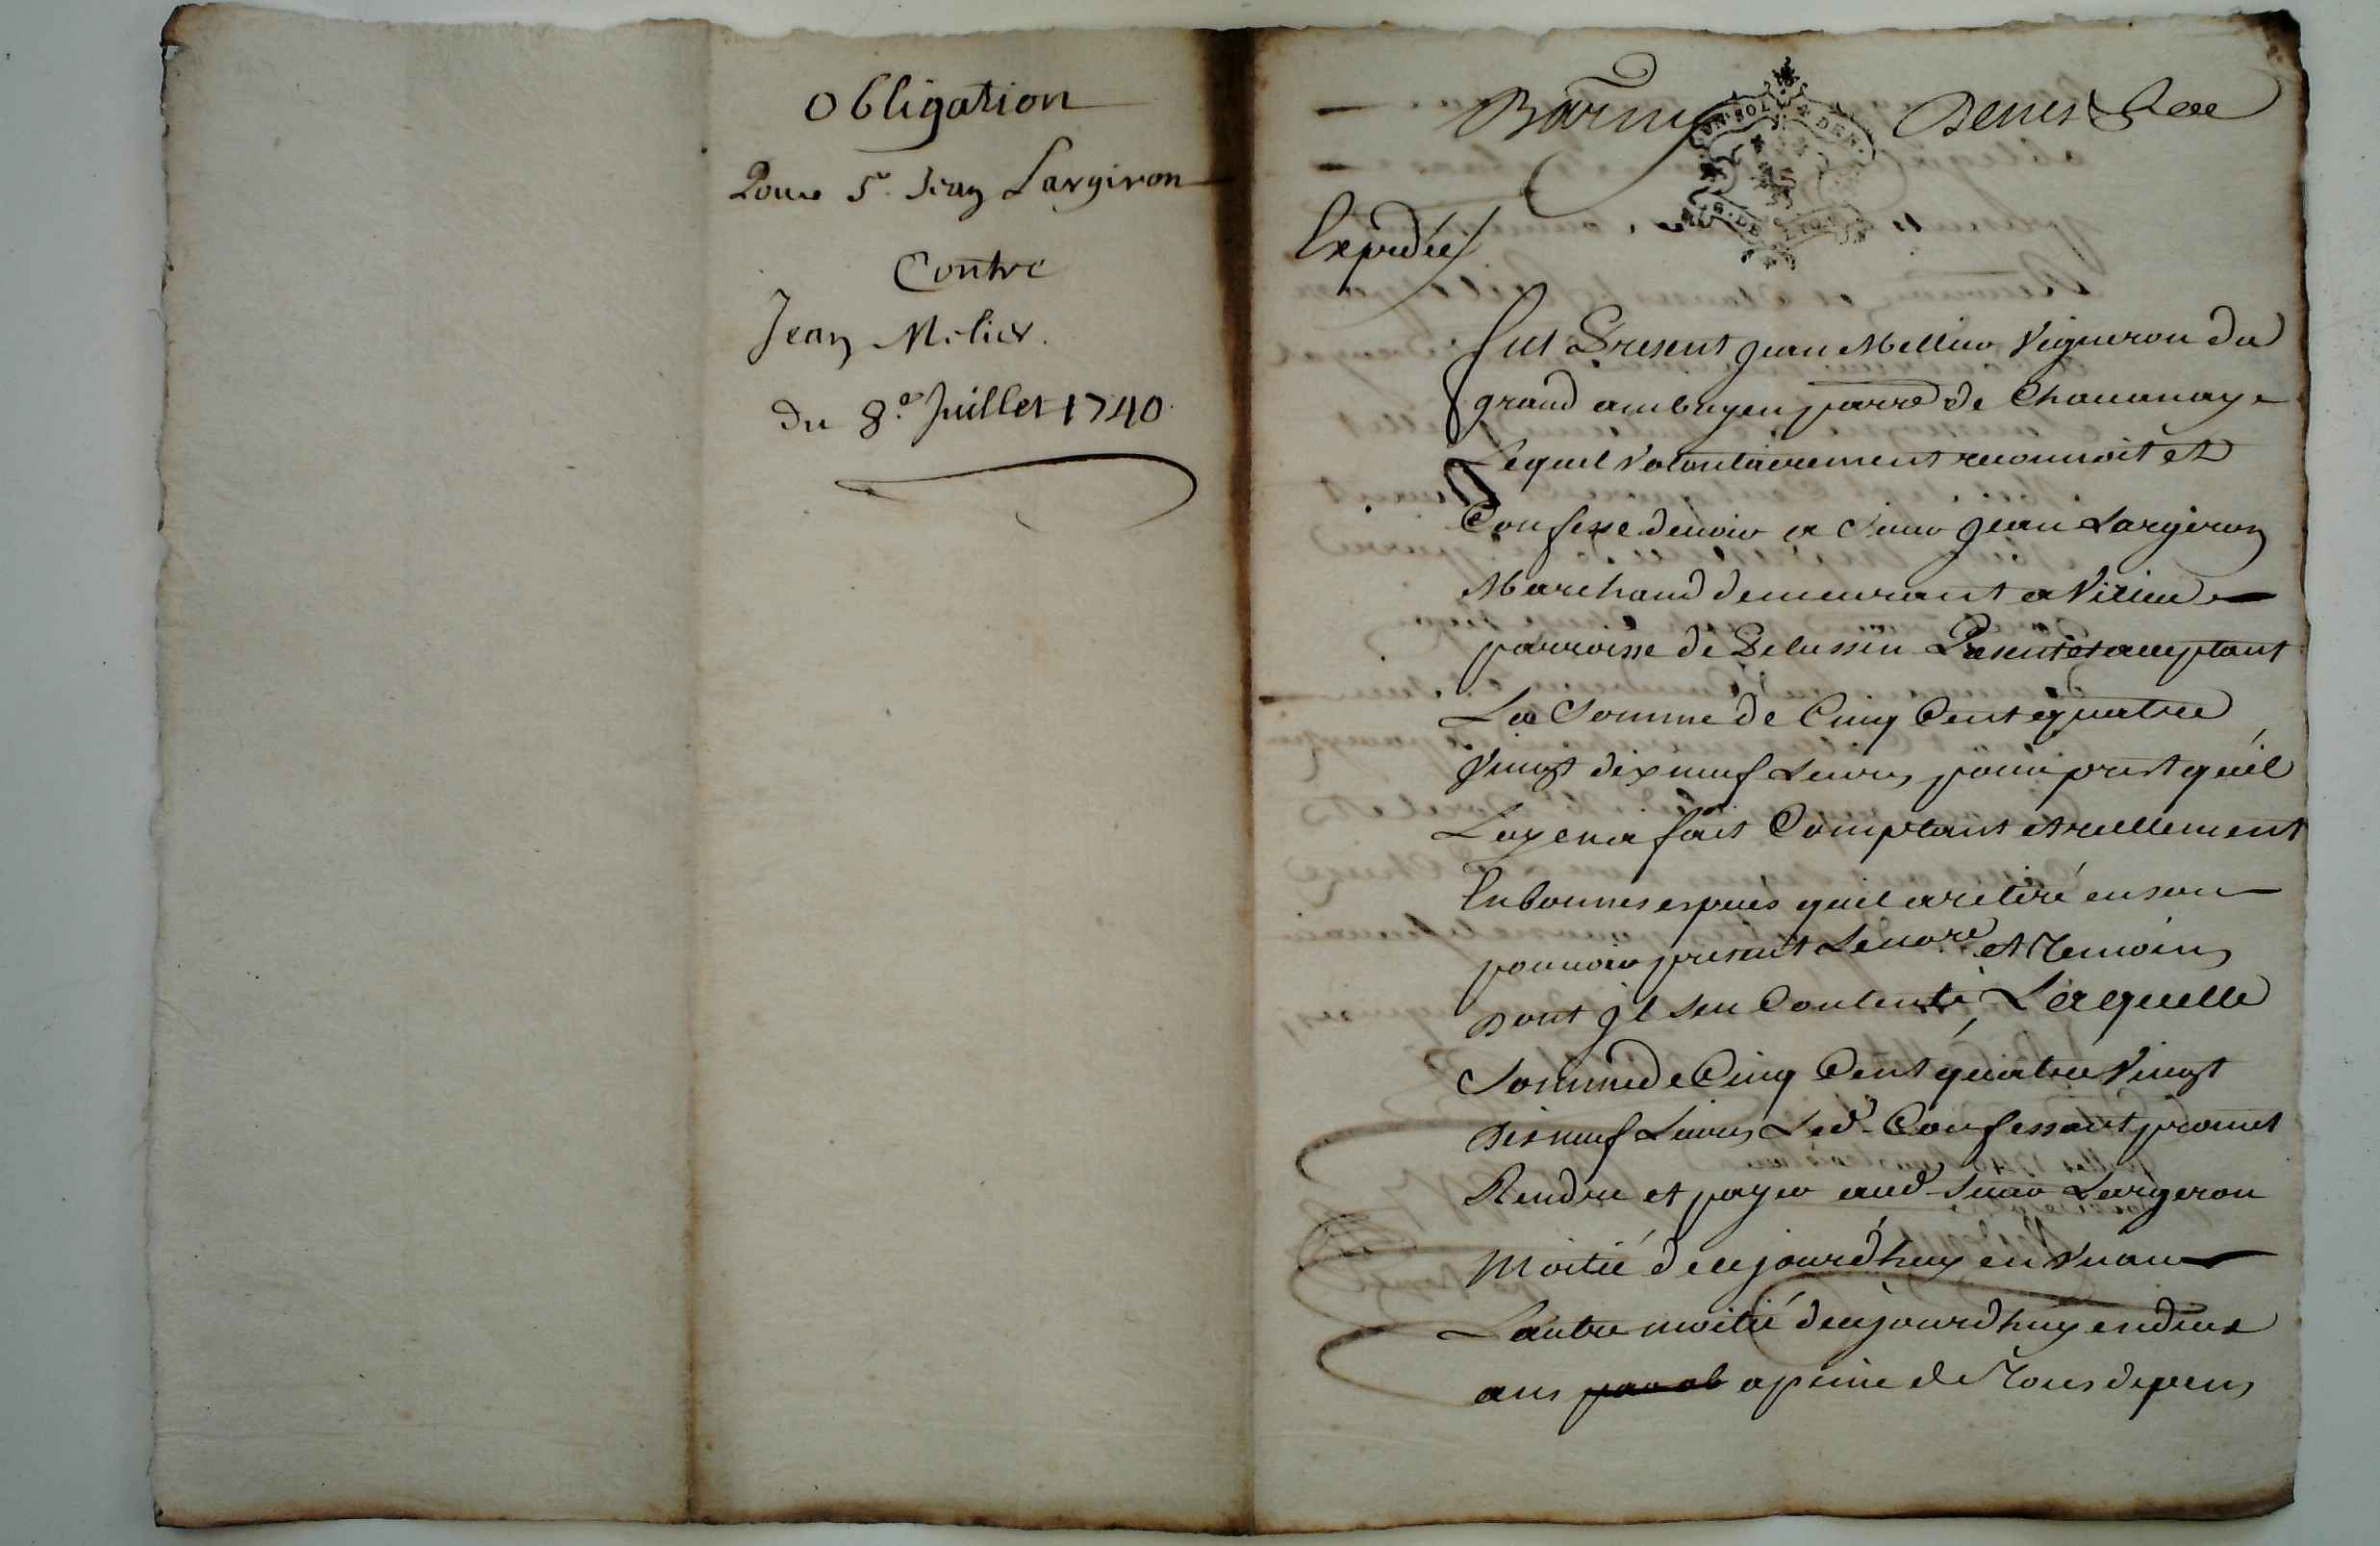 Obligation
Pour Sr. Jean Largiron
Contre
Jean Melier.
du 8e Juillet 1740
Denis
Expediée
Fut Present Jean Mellier Vigneron du
grand embuyen parre de Chauanay
Lequel volontairement reconnoit et
Confesse deuoir a Sieur Jean Largeron
Marchand demeurant a Virieu
parroisse de Pelussin Present et acceptant
La Somme de Cinq Cent quatre
Vingt dix neuf Liures pour prest qu'il
Luy en a fait Comptant et reellement
En bonnes especes quil a retiré en son
pouuoir present Le nore et Temoins
Dont Jl sen Contente, Laquelle
Somme de Cinq Cent quatre Vingt
Dix neuf Liures Led. Confessant promet
Rendre et payer aud. Sieur Largeron
Moitié de cejourdhuy en vn an
Lautre moitié de cejourdhuy en deux
ans a peine de Tous depens